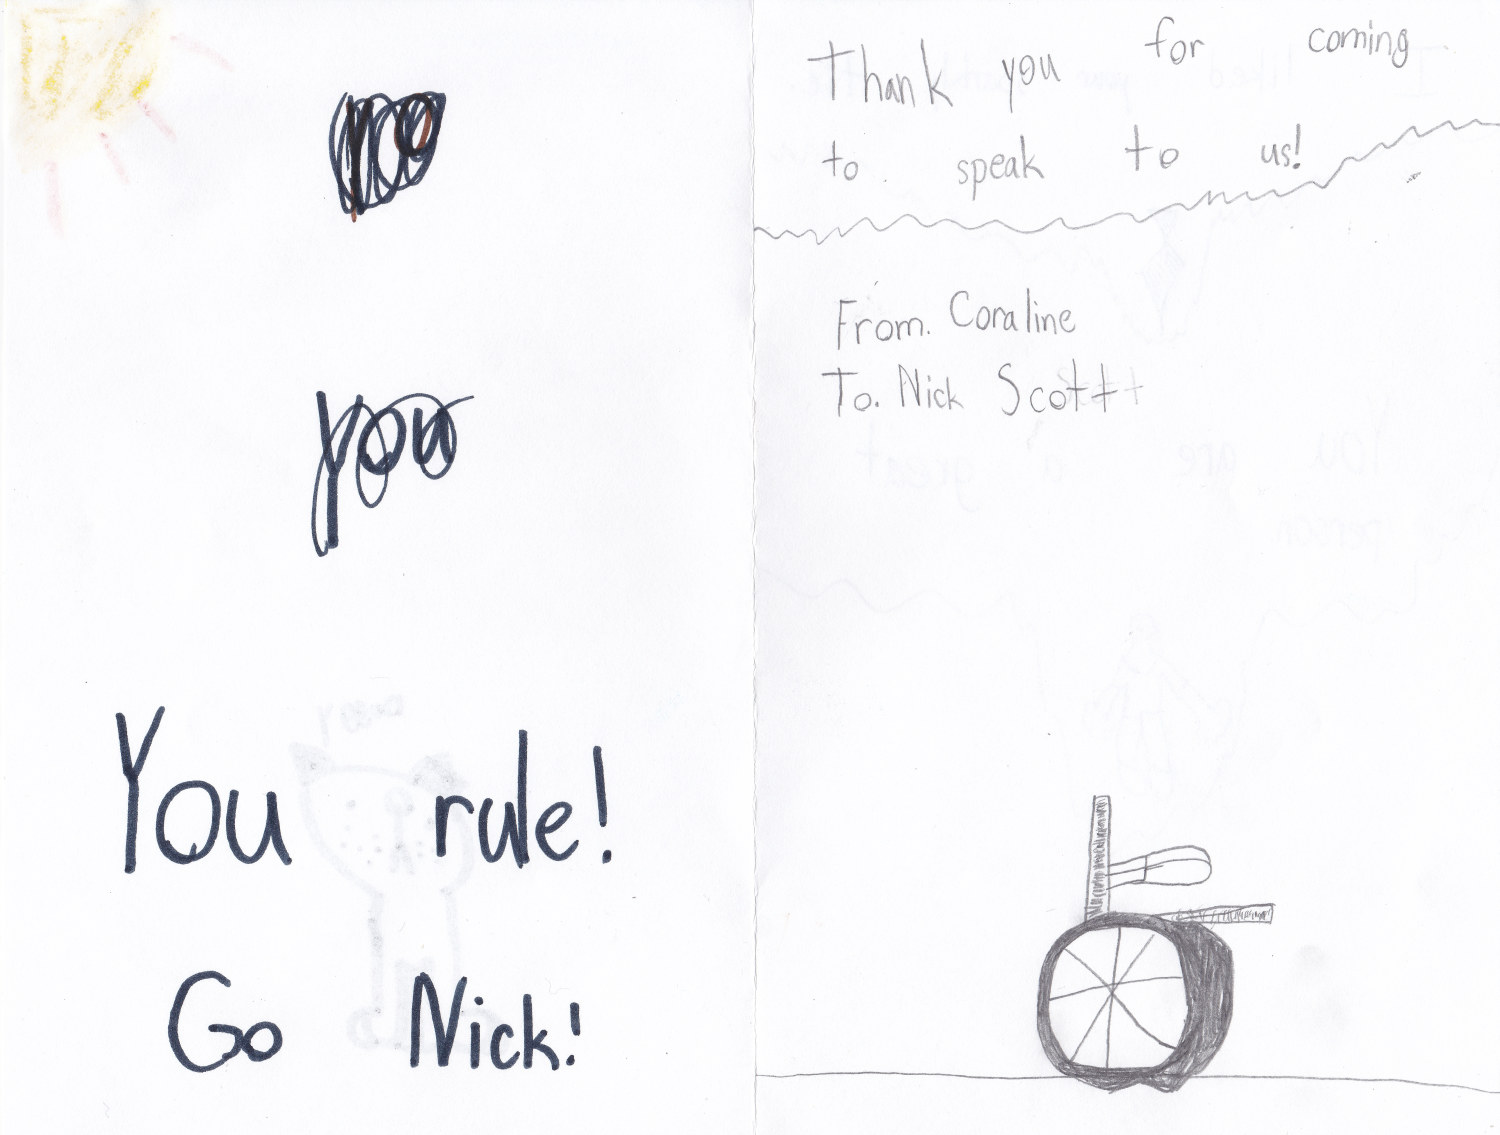 you
You rule!
Go Nick!
Thank you for coming
to speak to us!
From. Coraline
To. Nick Scott